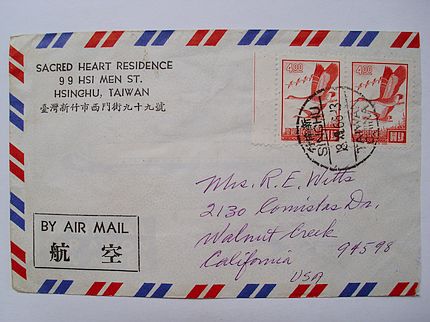 SACRED HEART RESIDENCE
99 HSI MEN ST.
HSINCHU, TAIWAN
臺灣新竹市西門街九十九號
4.00
4.00
SINCHU
TAIWAN
CHINA
Mrs. R. E. Witts
2130 Comistas Dr.
Walnut Creek
California 94598
USA
BY AIR MAIL
航空